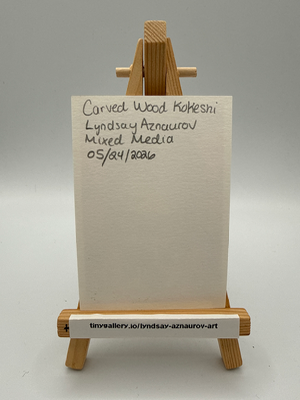 Carved Wood Kokeshi
Lyndsay Aznaurov
Mixed Media
05/24/2026
tinygallery.io/lyndsay-aznaurov-art